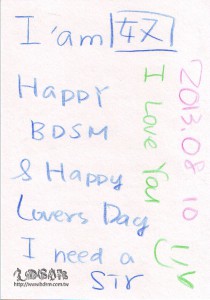 I'am 奴
Happy
BDSM
& Happy
Lovers Day
I need a
Sir
I Love You
2013.08 10
http://www.bdsm.com.tw